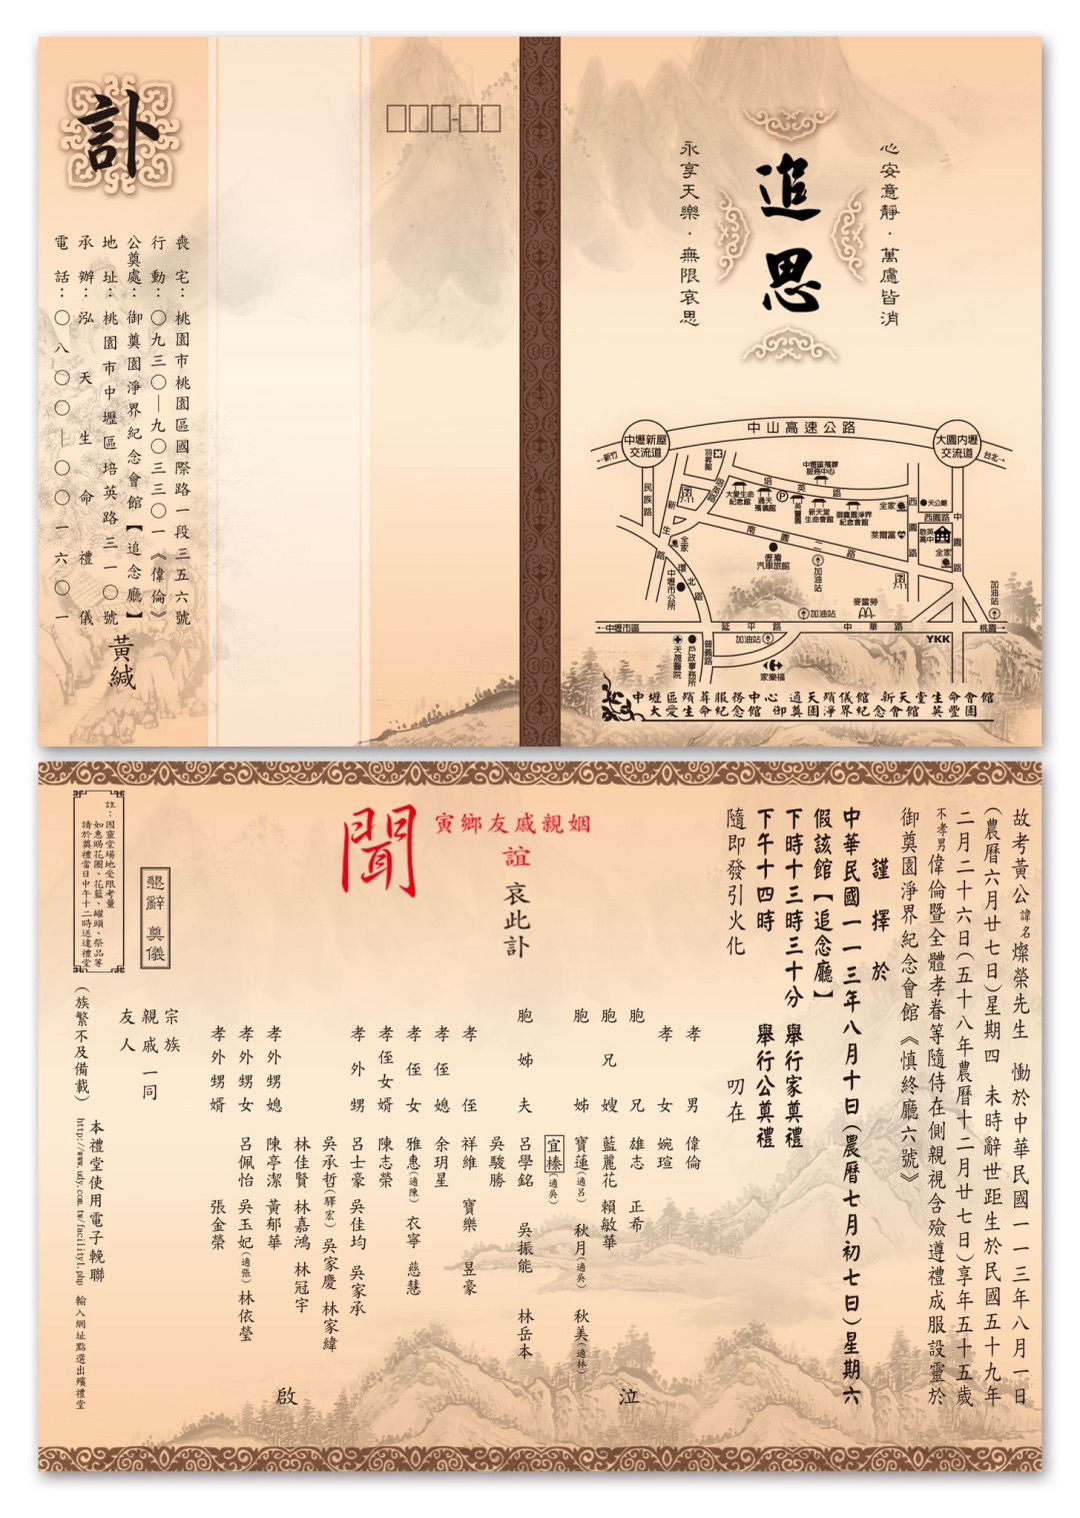 訃
喪宅：桃園市桃園區國際路一段三五六號
行動：〇九三〇—九〇三三〇一《偉倫》
公奠處：御奠園淨界紀念會館【追念廳】
地址：桃園市中壢區培英路三一〇號
承辦：泓天生命禮儀
電話：〇八〇〇—〇〇一六〇一
黃緘
心安意靜．萬慮皆消
追思
永享天樂．無限哀思
中山高速公路
中壢新屋交流道
大園內壢交流道
←新竹
台北→
羽昇館
中壢區殯葬服務中心
民族路
新生路
培英路
培英路
大愛生命紀念館
通天殯儀館
P
英豐園
新天堂生命會館
御奠園淨界紀念會館
全家
西園路
天公廟
西園路
中園路
啟英高中
全家
萊爾富
全家
南園二路
儷灣汽車旅館
加油站
環北路
中壢市公所
加油站
麥當勞
加油站
←中壢市區
延平路
中華路
桃園→
天晟醫院
戶政事務所
普義路
加油站
家樂福
YKK
中壢區殯葬服務中心 通天殯儀館 新天堂生命會館
大愛生命紀念館 御奠園淨界紀念會館 英豐園
故考黃公諱名燦榮先生 慟於中華民國一一三年八月一日
（農曆六月廿七日）星期四 未時辭世距生於民國五十九年
二月二十六日（五十八年農曆十二月廿七日）享年五十五歲
不孝男偉倫暨全體孝眷等隨侍在側親視含殮遵禮成服設靈於
御奠園淨界紀念會館《慎終廳六號》
謹擇於
中華民國一一三年八月十日（農曆七月初七日）星期六
假該館【追念廳】
下時十三時三十分 舉行家奠禮
下午十四時 舉行公奠禮
隨即發引火化 叨在
姻親戚友鄉寅
誼
哀此訃
聞
孝男 偉倫
孝女 婉瑄
胞兄 雄志 正希
胞兄嫂 藍麗花 賴敏華
胞姊 寶蓮（適呂） 秋月（適吳） 秋美（適林）
宜榛（適吳）
胞姊夫 呂學銘 吳振能 林岳本
吳駿勝
孝侄 祥維 寶樂 昱豪
孝侄媳 余玥星
孝侄女 雅惠（適陳） 衣寧 慈慧
孝侄女婿 陳志榮
孝外甥 呂士豪 吳佳均 吳家承
吳承哲（驛宏） 吳家慶 林家緯
林佳賢 林嘉鴻 林冠宇
孝外甥媳 陳亭潔 黃郁華
孝外甥女 呂佩怡 吳玉妃（適張） 林依瑩
孝外甥婿 張金榮
泣
啟
宗族
親戚一同
友人
（族繁不及備載）
懇辭 奠儀
註：因靈堂場地受限考量
如惠賜花圈、花籃、罐頭、祭品等
請於奠禮當日中午十二時送達禮堂
本禮堂使用電子輓聯
http://www.udy.com.tw/facility1.php 輸入網址點選出殯禮堂